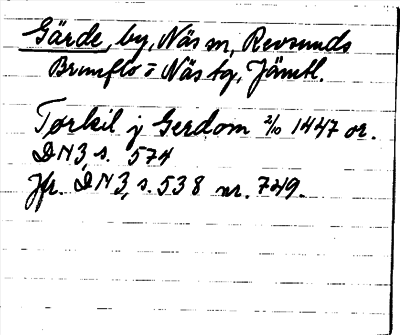 Gärde, by, Näs sn, Revsunds
Brunflo o Näs tg, Jämtl.
Torkil j Gerdom 2/10 1447 or.
DN 3, s. 574
Jfr. DN 3, s. 538 nr. 749.